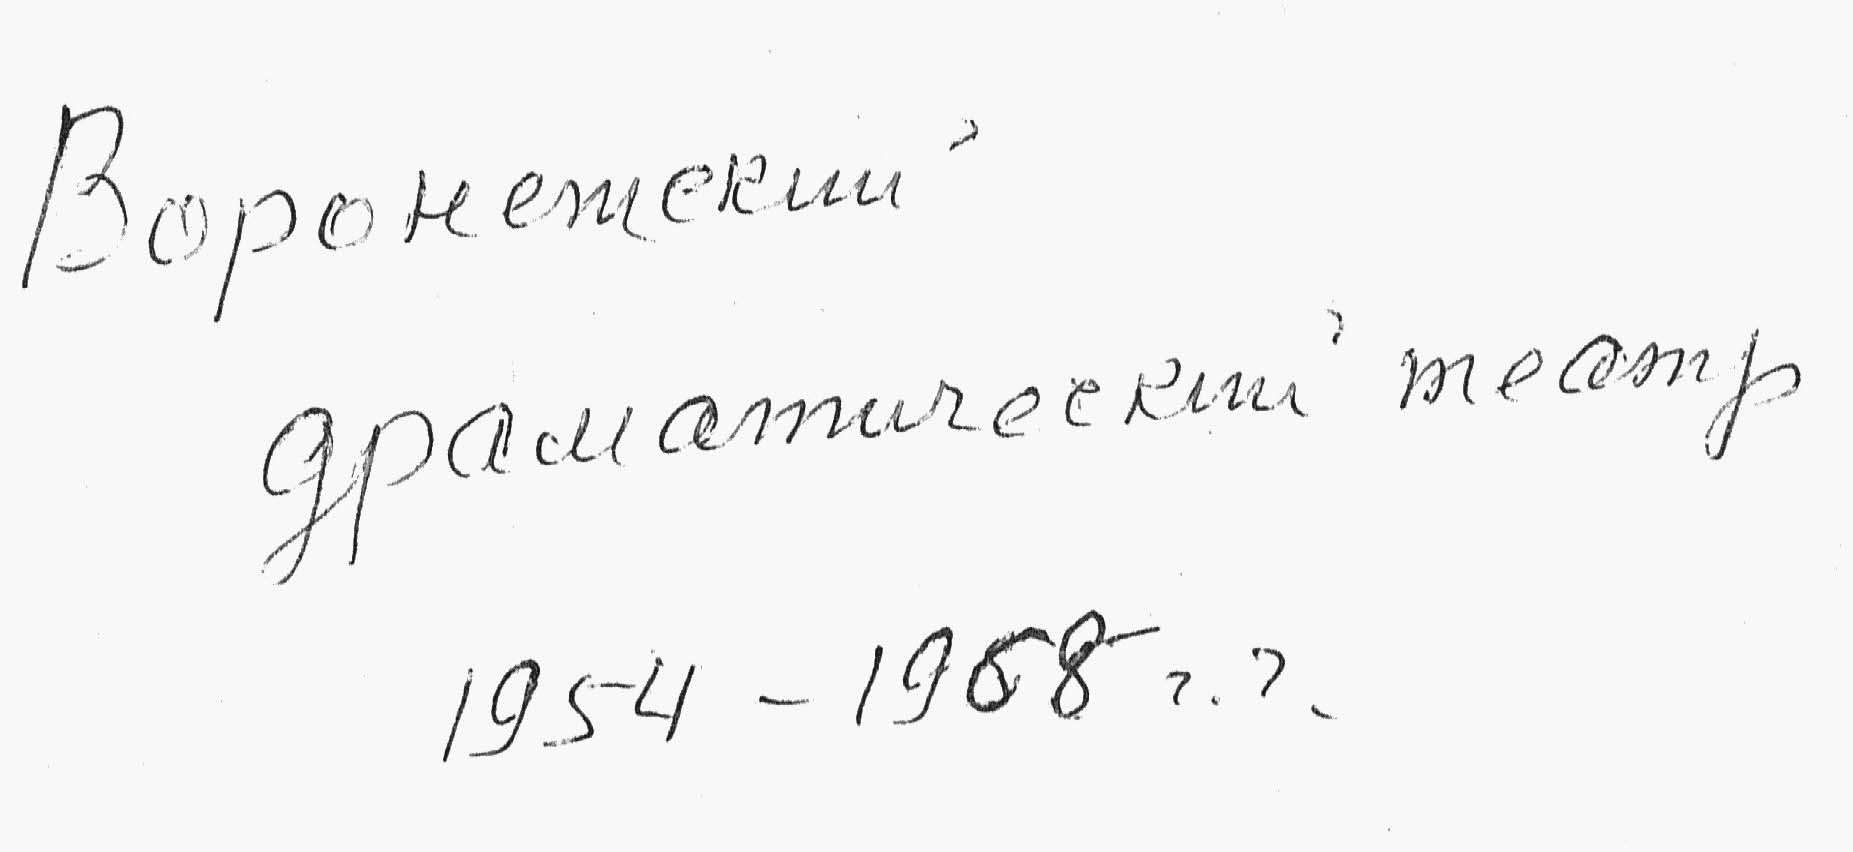 Воронежский
драматический театр
1954 – 1968 г.г.